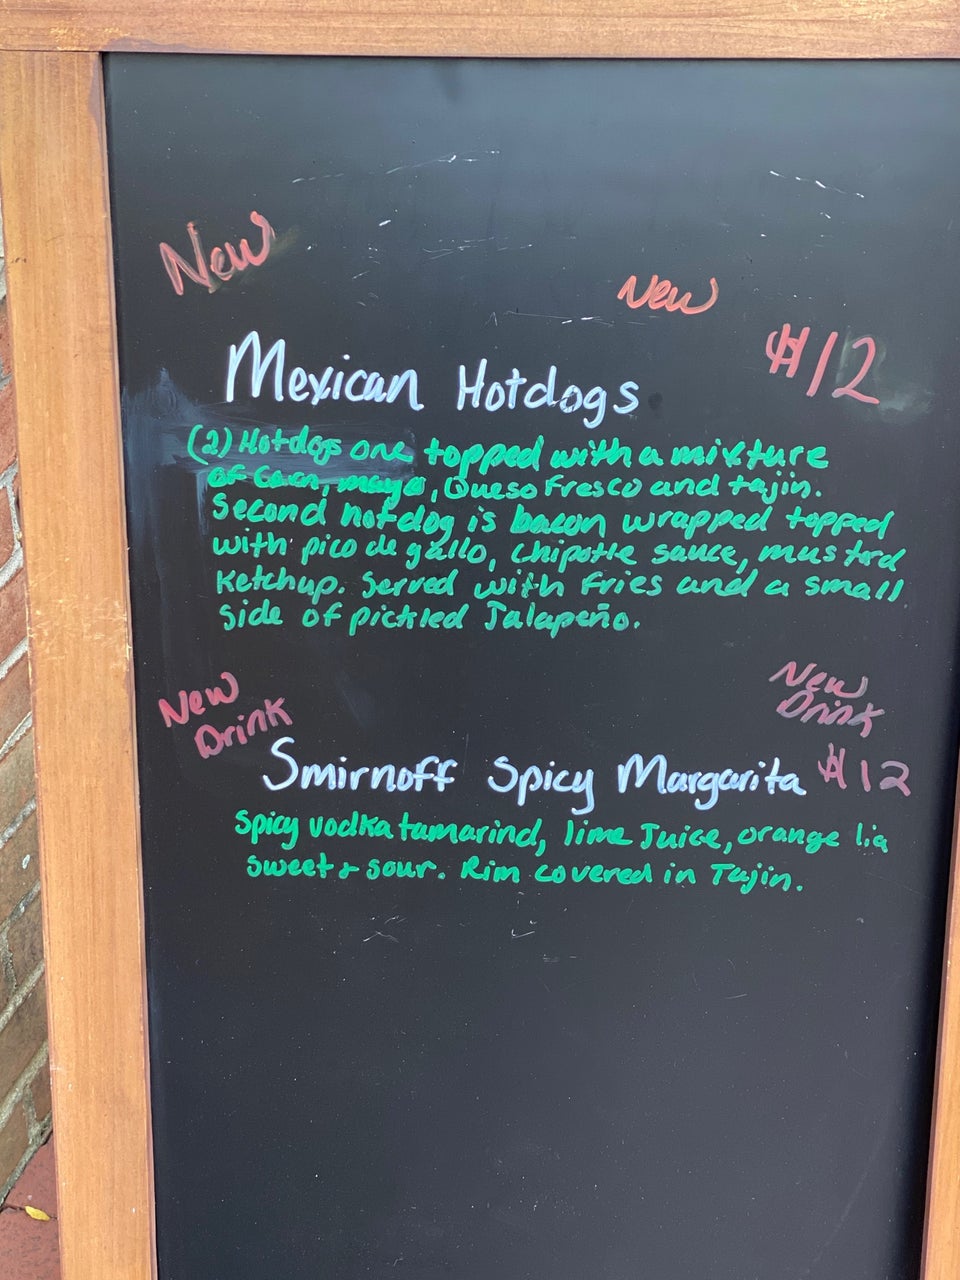 New
New
$12
Mexican Hotdogs
(2) Hotdogs one topped with a mixture
of Corn, mayo, Queso Fresco and tajin.
Second hotdog is bacon wrapped topped
with pico de gallo, Chipotle sauce, mustard
Ketchup. Served with Fries and a small
side of pickled Jalapeño.
New
Drink
New
Drink
Smirnoff Spicy Margarita $12
Spicy vodka tamarind, lime Juice, orange liq
sweet & sour. Rim covered in Tajin.